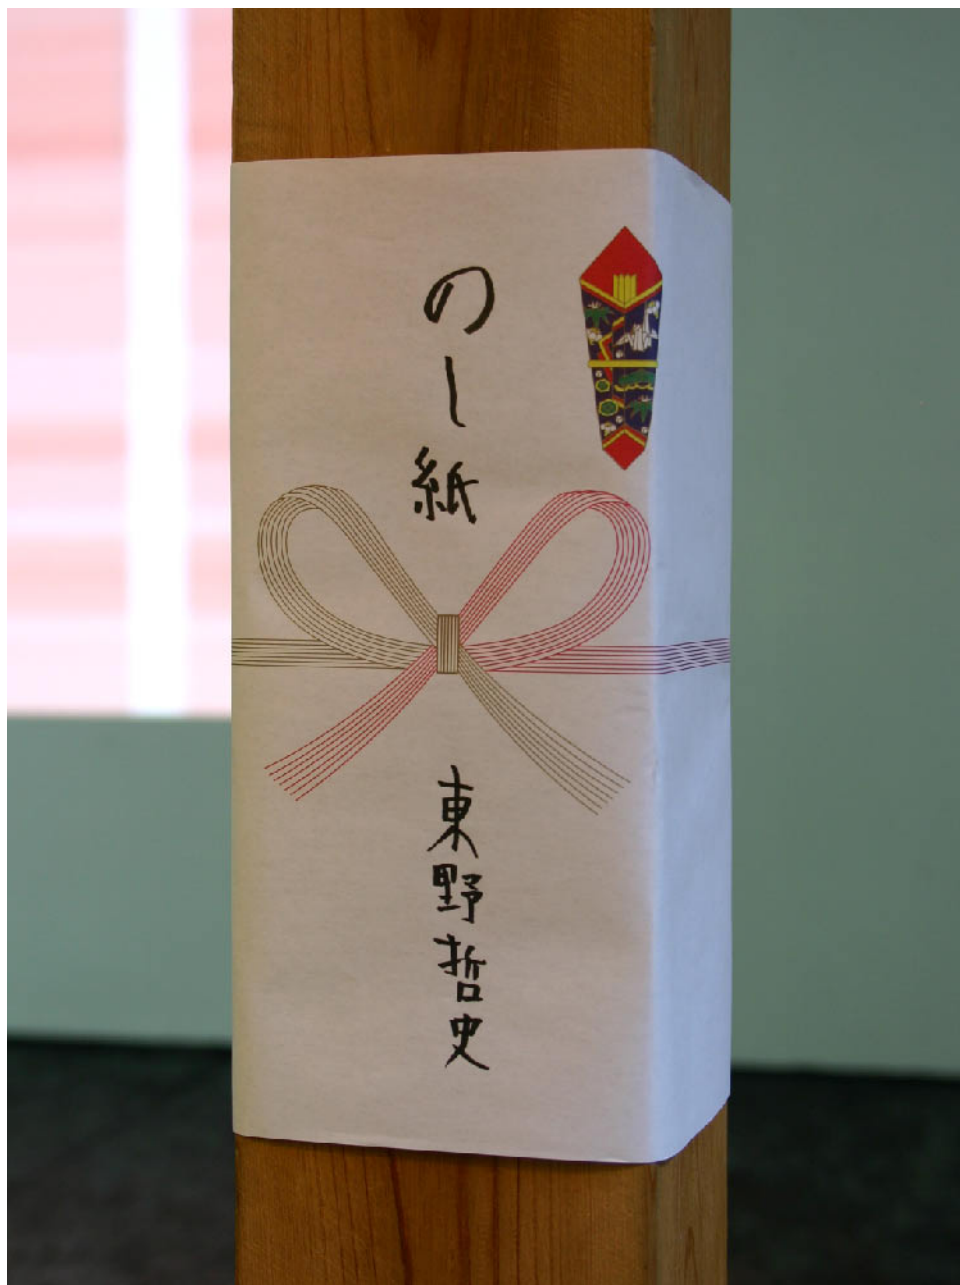 のし紙
東野哲史